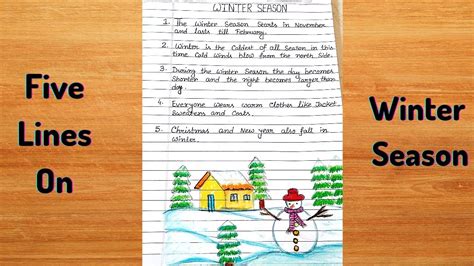 Five
Lines
On
WINTER SEASON
1. The Winter Season Starts in November
and lasts till February.
2. Winter is the Coldest of all Season in this
time Cold Winds blow from the north side.
3. During the Winter Season the day becomes
Shorter and the night becomes larger than
day.
4. Everyone Wears warm Clothes like Jacket,
Sweaters and Coats.
5. Christmas and New year also fall in
Winter.
Winter
Season